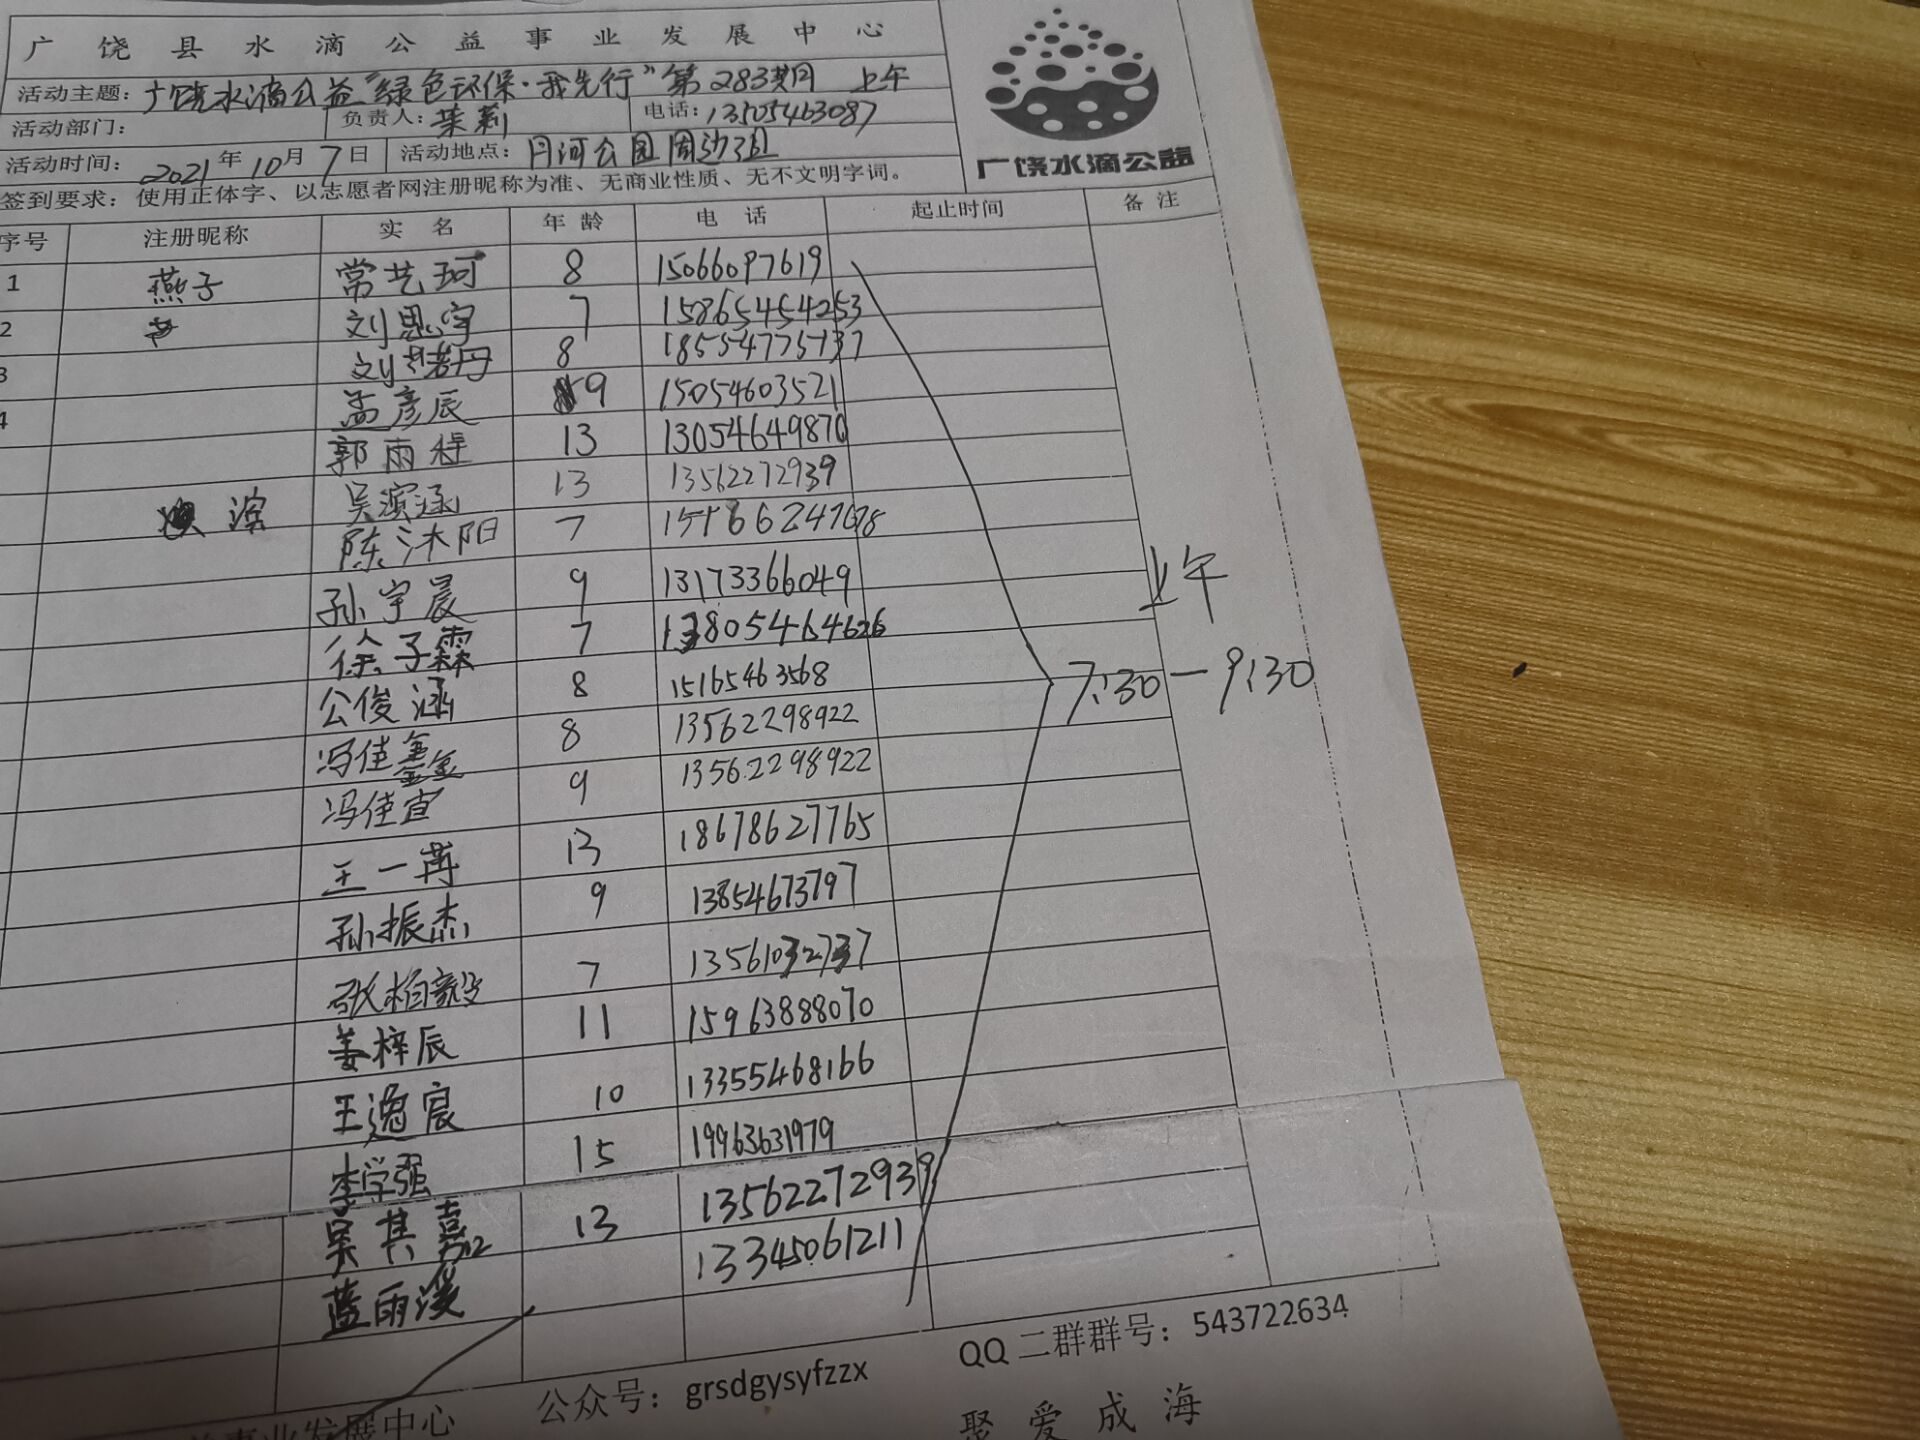 广饶县水滴公益事业发展中心
活动主题：广饶水滴公益“绿色环保·我先行”第283期 上午
活动部门： 负责人：茉莉 电话：13505463087
活动时间：2021年10月7日 活动地点：月河公园周边
签到要求：使用正体字、以志愿者网注册昵称为准、无商业性质、无不文明字词。
广饶水滴公益
序号 注册昵称 实名 年龄 电话 起止时间 备注
1 燕子 常艺珂 8 15066097619
2 刘思宇 7 15865454253
3 刘若丹 8 18554775737
4 孟彦辰 9 15054603521
郭雨 13 13054649870
滨 吴滨涵 13 13562272939
陈沐阳 7
孙宇晨 9 13173366049
徐子霖 7 13805464626
公俊涵 8 15165463568
冯佳鑫 8 13562298922
冯佳宜 9 13562298922
王一苒 13 18678627765
孙振杰 9 13854673797
张柏毅 7 13561032737
姜梓辰 11 15963888070
王逸宸 10 13355468166
李学强 15 19963631979
吴其嘉 13 13562272939
蓝雨溪 13345061211
上午
7:30—9:30
公众号：grsdgysyfzzx QQ二群群号：543722634
事业发展中心 聚爱成海